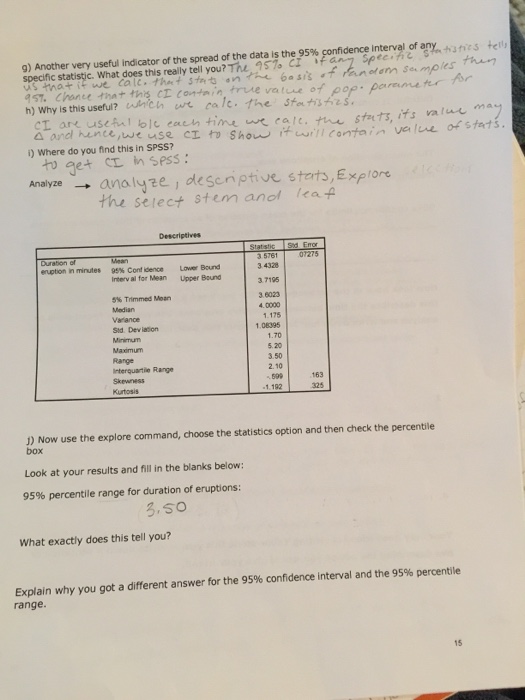 g) Another very useful indicator of the spread of the data is the 95% confidence interval of any
specific statistic. What does this really tell you? The 95% CI if any specific statistics tells
us that if we calc. that stats on the basis of random samples then
95% chance that this CI contain true value of pop. parameter for
h) Why is this useful? which we calc. the statistics.
CI are useful b/c each time we calc. the stats, its value may
Δ and hence, we use CI to show it will contain value of stats.
i) Where do you find this in SPSS?
to get CI in SPSS:
Analyze → analyze, descriptive stats, Explore
the select stem and leaf
Descriptives
Statistic Std. Error
Duration of eruption in minutes Mean 3.5761 .07275
95% Confidence Interval for Mean Lower Bound 3.4328
Upper Bound 3.7195
5% Trimmed Mean 3.6023
Median 4.0000
Variance 1.175
Std. Deviation 1.08395
Minimum 1.70
Maximum 5.20
Range 3.50
Interquartile Range 2.10
Skewness -.599 .163
Kurtosis -1.192 .325
j) Now use the explore command, choose the statistics option and then check the percentile
box
Look at your results and fill in the blanks below:
95% percentile range for duration of eruptions:
3.50
What exactly does this tell you?
Explain why you got a different answer for the 95% confidence interval and the 95% percentile
range.
15